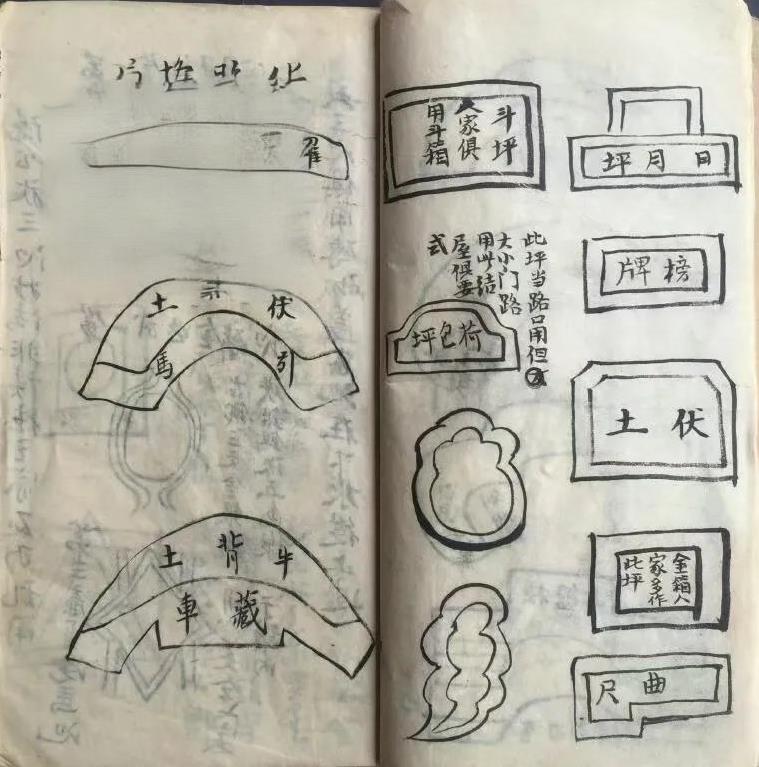 日月坪
斗坪
人家俱
用斗箱
榜牌
此坪当路口用但
大小门路
用此结
屋俱要
式
荷包坪
伏土
金箱人
家多作
此坪
曲尺
伏 土
引馬
牛背土
藏車